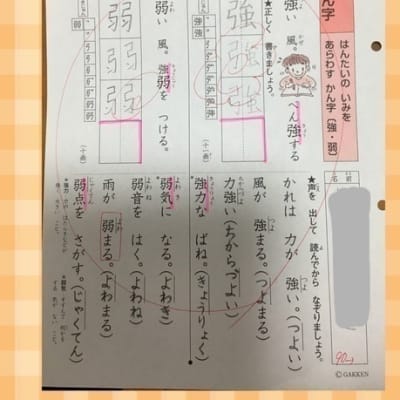 ん字
はんたいの いみを
あらわす かん字〔強・弱〕
★正しく 書きましょう。
強い 風。べん強する
強
強
(十一画)
弱い 風。強弱を つける。
弱
弱
(十画)
名前
90
★声を 出して 読んでから なぞりましょう。
かれは 力が 強い。(つよい)
風が 強まる。(つよまる)
力強い(ちからづよい)
強力な ばね。(きょうりょく)
弱気に なる。(よわき)
弱音を はく。(よわね)
雨が 弱まる。(よわまる)
弱点を さがす。(じゃくてん)
©GAKKEN